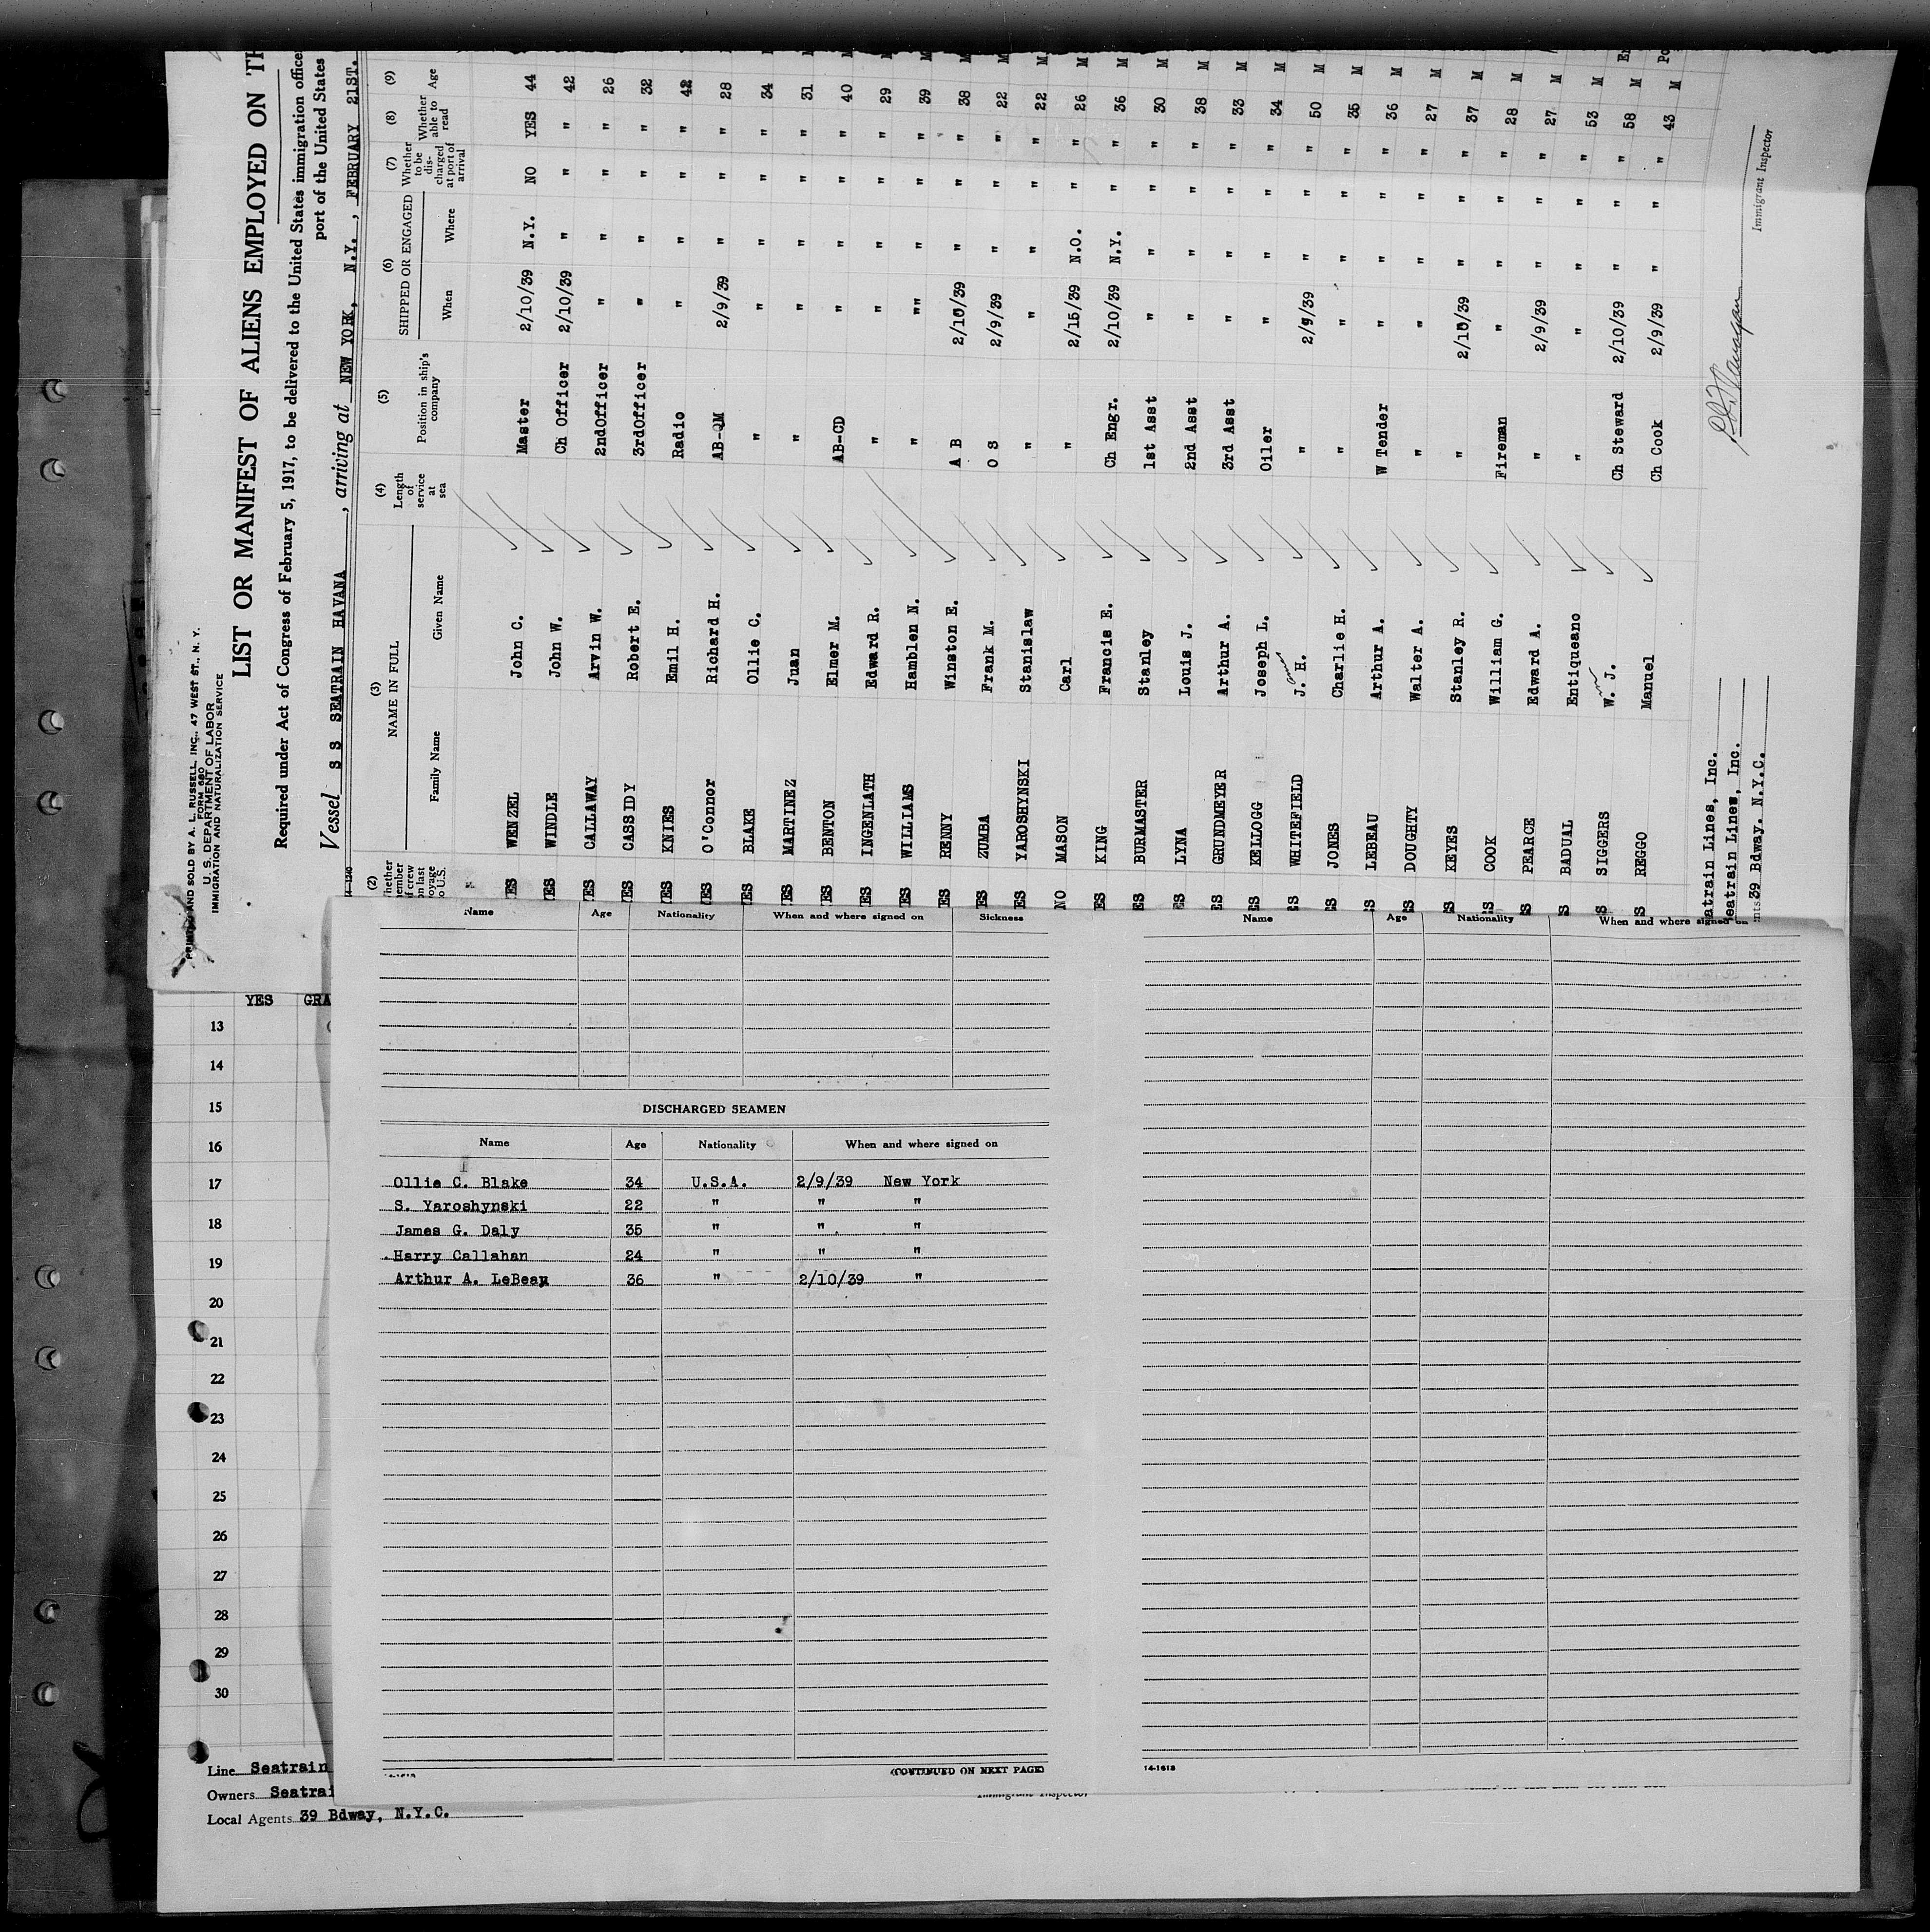 PRINTED AND SOLD BY A. L. RUSSELL, INC., 47 WEST ST., N. Y.
FORM 680
U. S. DEPARTMENT OF LABOR
IMMIGRATION AND NATURALIZATION SERVICE
LIST OR MANIFEST OF ALIENS EMPLOYED ON TH
Required under Act of Congress of February 5, 1917, to be delivered to the United States immigration office
port of the United States
Vessel S S SEATRAIN HAVANA, arriving at NEW YORK, N.Y., FEBRUARY 21ST.
(2) (3) (4) (5) (6) (7) (8) (9)
NAME IN FULL Length of service at sea Position in ship's company SHIPPED OR ENGAGED Whether to be discharged at port of arrival Whether able to read Age
Family Name Given Name When Where
ES WENZEL John C. Master 2/10/39 N.Y. NO YES 44
YES WINDLE John W. Ch Officer 2/10/39 " " " 42
YES CALLAWAY Arvin W. 2ndOfficer " " " " 26
YES CASSIDY Robert E. 3rdOfficer " " " " 32
YES KNIES Emil H. Radio " " " " 42
YES O'Connor Richard H. AB-QM 2/9/39 " " " 28
YES BLAKE Ollie C. " " " " " 34
YES MARTINEZ Juan " " " " " 31
YES BENTON Elmer M. AB-CD " " " " 40
YES INGENLATH Edward R. " " " " " 29
ES WILLIAMS Hamblen N. " "" " " " 39 M
ES RENNY Winston E. A B 2/10/39 " " " 38 M
ES ZUMBA Frank M. O S 2/9/39 " " " 22 M
ES YAROSHYNSKI Stanislaw " " " " " 22 M
NO MASON Carl " 2/15/39 N.O. " " 26 M
ES KING Francis E. Ch Engr. 2/10/39 N.Y. " " 36 M
ES BURMASTER Stanley 1st Asst " " " " 30 M
ES LYNA Louis J. 2nd Asst " " " " 38 M
ES GRUNDMEYER Arthur A. 3rd Asst " " " " 33 M
ES KELLOGG Joseph L. Oiler " " " " 34 M
ES WHITEFIELD J. H. " 2/9/39 " " " 50 M
ES JONES Charlie H. " " " " " 35 M
ES LEBEAU Arthur A. W Tender " " " " 36 M
ES DOUGHTY Walter A. " " " " " 27 M
S KEYES Stanley R. " 2/10/39 " " " 37 M
S COOK William G. Fireman " " " " 28 M
S PEARCE Edward A. " 2/9/39 " " " 27 M
S BADUAL Entiqueano " " " " " 53 M
S SIGGERS W. J. Ch Steward 2/10/39 " " " 58 M
S REGGO Manuel Ch Cook 2/9/39 " " " 43 M
atrain Lines, Inc.
eatrain Lines, Inc.
39 Bdway. N.Y.C.
Immigrant Inspector
Name Age Nationality When and where signed on Sickness
Name Age Nationality When and where signed on
DISCHARGED SEAMEN
Name Age Nationality When and where signed on
Ollie C. Blake 34 U.S.A. 2/9/39 New York
S. Yaroshynski 22 " " "
James G. Daly 35 " " "
Harry Callahan 24 " " "
Arthur A. LeBeau 36 " 2/10/39 "
(CONTINUED ON NEXT PAGE)
14-1613
YES GRA
13
14
15
16
17
18
19
20
21
22
23
24
25
26
27
28
29
30
Line Seatrain
Owners Seatrai
Local Agents 39 Bdway, N.Y.C.
Immigrant Inspector